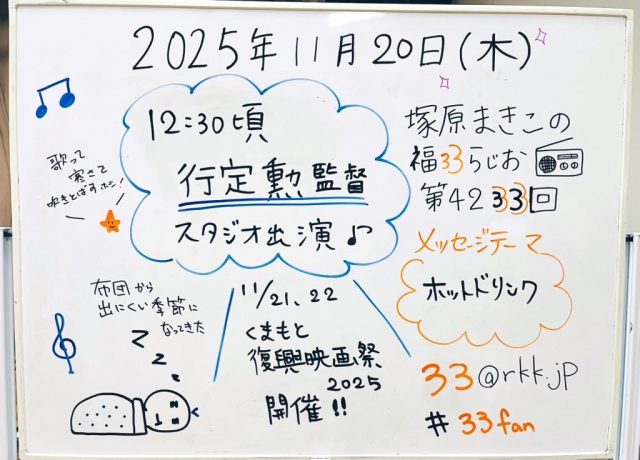 2025年11月20日(木)
12:30頃
行定勲監督
スタジオ出演♪
塚原まきこの
福33らじお
第4233回
メッセージテーマ
ホットドリンク
33@rkk.jp
#33fan
歌って
寒さて
吹きとばすホシ!
布団から
出にくい季節に
なってきた
z z z
11/21、22
くまもと
復興映画祭
2025
開催!!